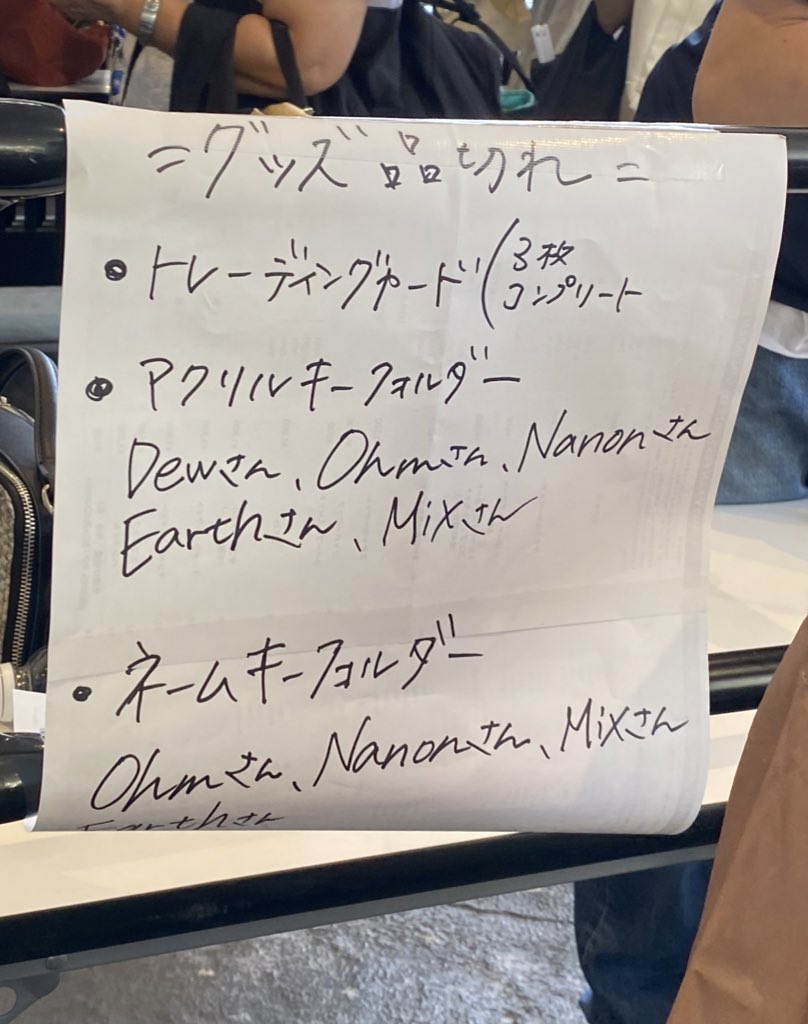 =グッズ 品切れ=
• トレーディングカード(3枚
コンプリート
• アクリルキーフォルダー
Dewさん、Ohmさん、Nanonさん
Earthさん、Mixさん
• ネームキーフォルダー
Ohmさん、Nanonさん、Mixさん
Earthさん